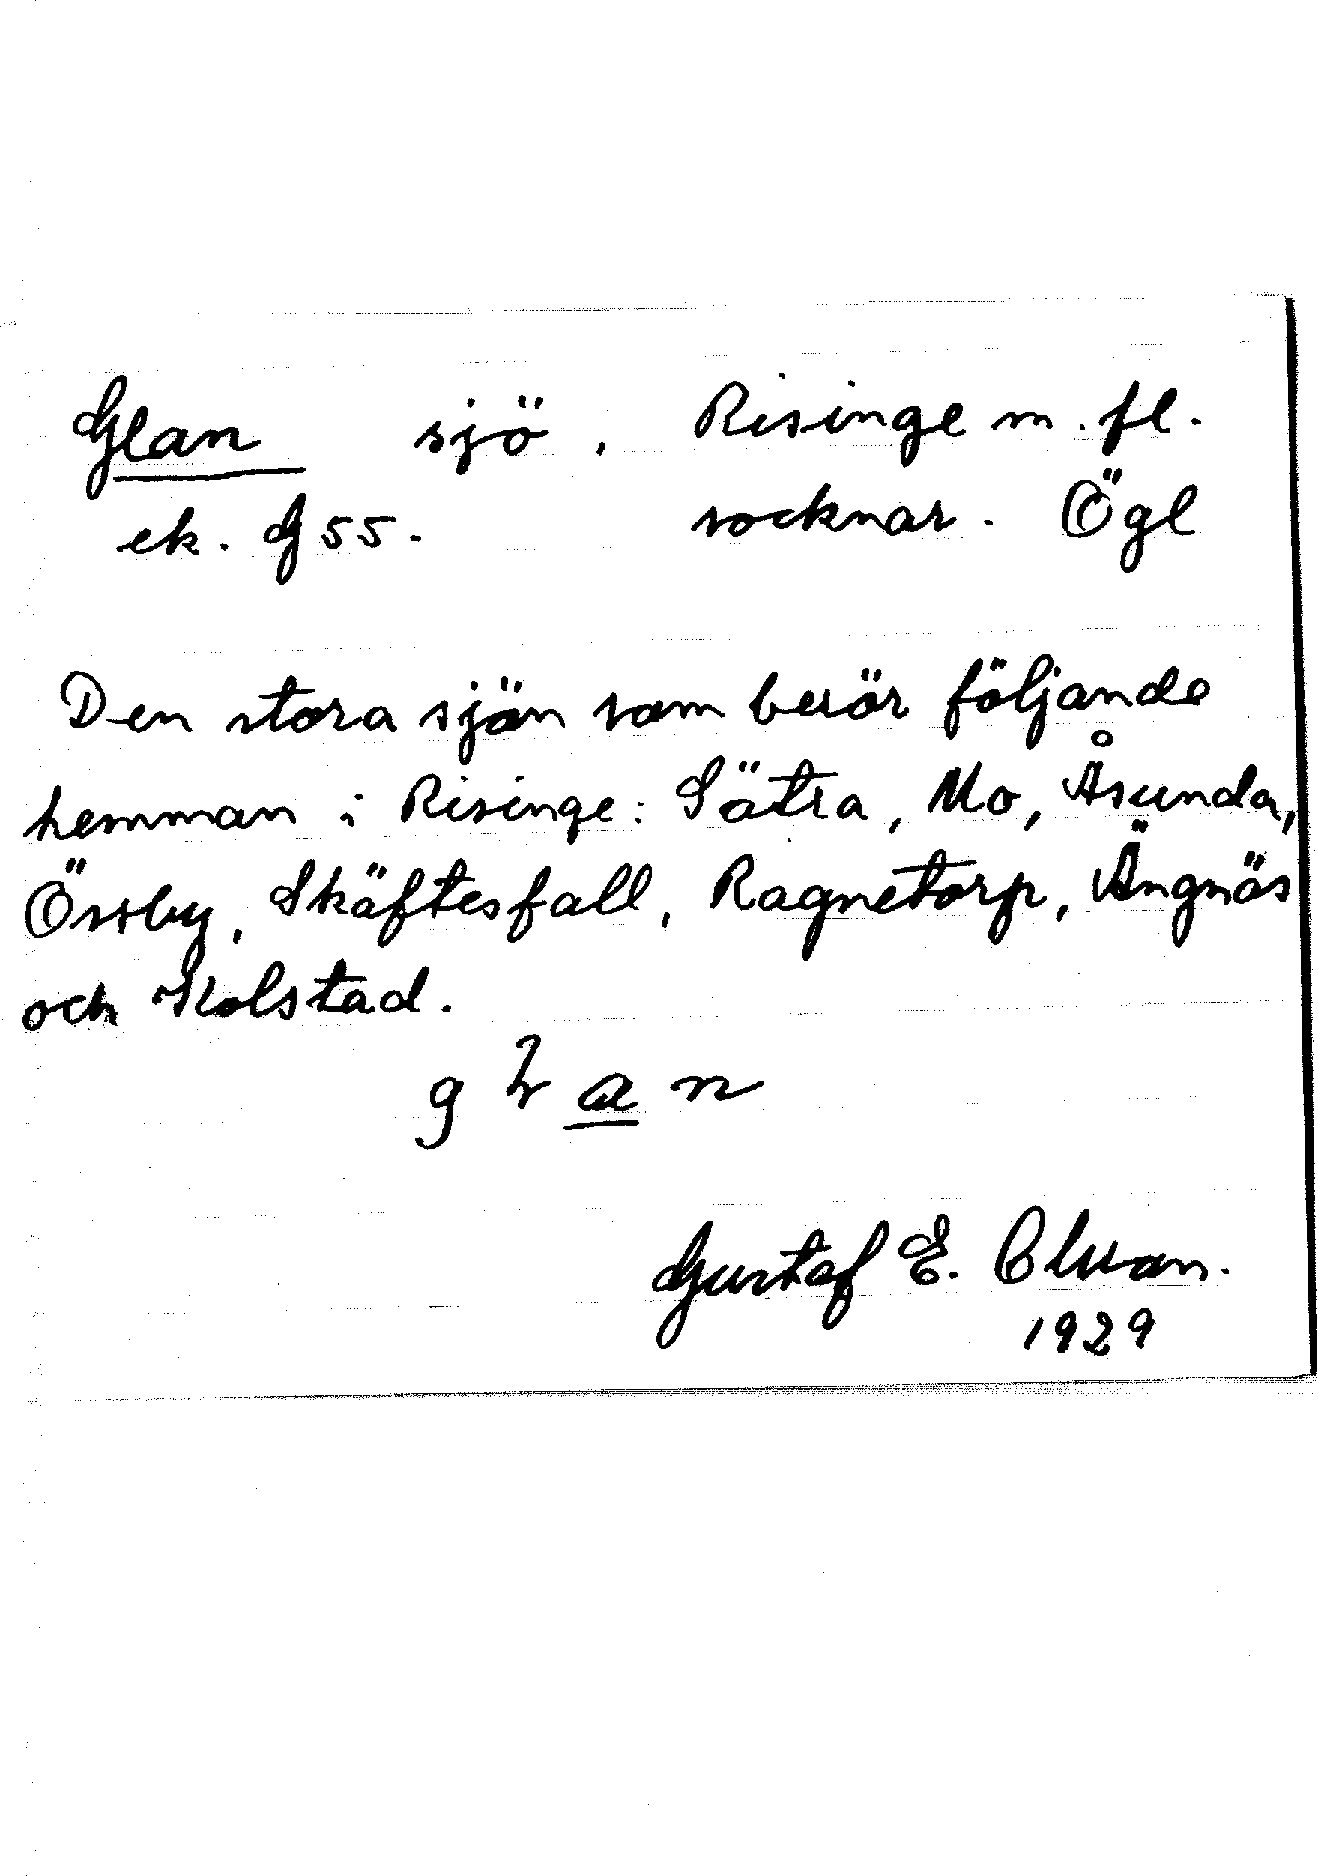 Glan sjö, Risinge m.fl.
ek. G 55. socknar. Ögl
Den stora sjön som berör följande
hemman i Risinge: Sätra, Mo, Åsunda,
Östby, Skäftesfall, Ragnetorp, Ängnäs
och Kolstad.
Gustaf E.
1929